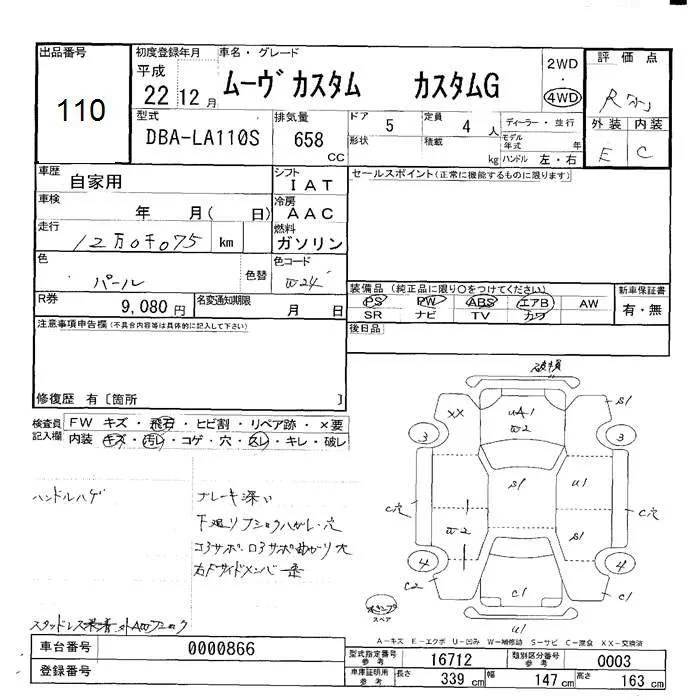 出品番号
110
初度登録年月
平成
22 12 月
車名・グレード
ムーヴ カスタム カスタムG
2WD
・
4WD
評価点
R
外装 内装
E C
型式
DBA-LA110S
排気量
658
CC
ドア 5
定員 4 人
形状
積載 kg
ディーラー・並行
モデル年式 年
ハンドル 左・右
車歴 自家用
シフト
I A T
セールスポイント(正常に機能するものに限ります)
車検 年 月( 日)
冷房
A A C
走行 12万0千075 km
燃料
ガソリン
色 パール 色替
色コード W24
装備品 (純正品に限り○をつけてください)
PS PW ABS エアB AW
SR ナビ TV カワ
新車保証書
有・無
R券 9,080 円
名変通知期限 月 日
後日品
注意事項申告欄(不具合内容等は具体的に記入して下さい)
修復歴 有 [箇所 ]
検査員記入欄
FW キズ・飛石・ヒビ割・リペア跡・×要
内装 キズ・汚レ・コゲ・穴・スレ・キレ・破レ
ハンドルハゲ
ブレーキ深い
下廻り ハガレ・穴
コアサポ・ロアサポ曲がり 穴
右Fサイドメンバー
スタッドレス装着
破損
XX
UA1
W2
S1
3
3
S1
U1
C穴
C穴
W2
S1
4
4
C2
C1
C1
U1
スペア
A-キズ E-エクボ U-凹み W-補修跡 S-サビ C-腐食 XX-交換済
車台番号 0000866
登録番号
型式指定番号 参考 16712
類別区分番号 参考 0003
車庫証明用 参考 長さ 339 cm 幅 147 cm 高さ 163 cm